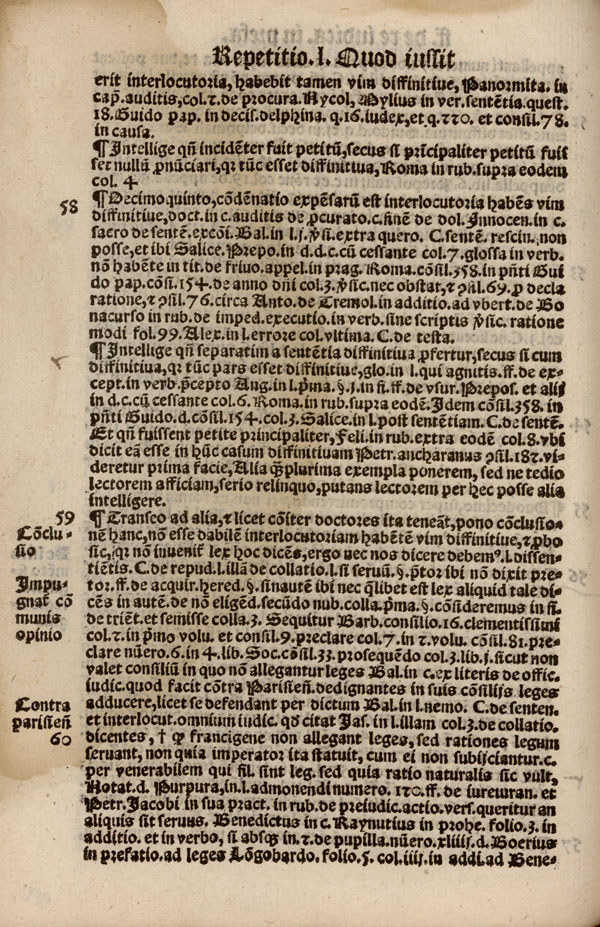 Repetitio.I. Quod iussit
erit interlocutoria, habebit tamen vim diffinitiue, Panormita. in
cap̃. auditis, col. 2. de procura. Nycol, Mylius in ver. sentẽtia. quest.
18. Guido pap. in decis. delphina. q. 16. iudex, et q. 220. et consil. 78.
in causa.
¶ Intellige qñ incidẽter fuit petitũ, secus si prĩcipaliter petitũ fuis
set nullũ ꝓnũciari, qꝛ tũc esset diffinitiua, Roma in rub. supra eodem
col. 4
58 ¶ Decimoquinto, cõdẽnatio expẽsarũ est interlocutoria habẽs vim
diffinitiue, doct. in c. auditis de ꝓcurato. c. finẽ de dol. Innocen. in c.
sacro de sentẽ. excõi. Bal. in l. j. ꝟsi. extra quero. C. sentẽ. rescin. non
posse, et ibi Salice. Prepo. in d. d. c. cũ cessante col. 7. glossa in verb.
nõ habẽte in tit. de friuo. appel. in prag. Roma. cõsil. 358. in pñti Gui
do pap. cõsi. 154. de anno dñi col. 3. ꝟsic. nec obstat, et ꝯsil. 69. ꝓ decla
ratione, et ꝯsil. 76. circa Anto. de Tremol. in additio. ad vbert. de Bo
nacurso in rub. de imped. executio. in verb. sine scriptis ꝟsic. ratione
modi fol. 99. Alex. in l. errore col. vltima. C. de testa.
¶ Intellige qñ separatim a sentẽtia diffinitiua ꝓfertur, secus si cum
diffinitiua, qꝛ tũc pars esset diffinitiue, glo. in l. qui agnitis. ff. de ex-
cept. in verb. p̃cepto Ang. in l. pͥma. §. j. in fi. ff. de vsur. Prepos. et alij
in d. c. cũ cessante col. 6. Roma. in rub. supra eodẽ. Idem cõsil. 358. in
pñti Guido. d. cõsil. 154. col. 3. Salice. in l. post sententiam. C. de sentẽ.
Et qñ fuissent petite principaliter, Feli. in rub. extra eodẽ col. 8. vbi
dicit eã esse in hũc casum diffinitiuam Petr. ancharanus ꝯsil. 182. vi-
deretur prima facie, Alia q̃plurima exempla ponerem, sed ne tedio
lectorem afficiam, serio relinquo, putans lectorem per hec posse alia
intelligere.
59 ¶ Transeo ad alia, et licet cõiter doctores ita teneãt, pono cõclusio-
Cõclu-
sio
nẽ hanc, non esse dabilẽ interlocutoriam habẽtẽ vim diffinitiue, et ꝓbo
sic, qꝛ nõ inuenit̃ lex hoc dicẽs, ergo nec nos dicere debemꝰ. l. dissen-
tiẽtis. C. de repud. l. illã de collatio. l. si seruũ. §. p̃tor ibi nõ dixit pre-
Impu-
gnat cõ
munis
opinio
tor. ff. de acquir. hered. §. sinautẽ ibi nec q̃libet est lex aliquid tale di-
cẽs in autẽ. de nõ eligẽd. secũdo nub. colla. pͥma. §. cõsideremus in fi.
de triẽt. et semisse colla. 3. Sequitur Barb. consilio. 16. clementissimi
col. 2. in pͥmo volu. et consil. 9. preclare col. 7. in 2. volu. cõsil. 81. pre-
clare nũero. 6. in 4. lib. Soc. cõsil. 33. prosequẽdo col. 3. lib. j. sicut non
valet consiliũ in quo nõ allegantur leges Bal. in c. ex literis de offic.
iudic. quod facit cõtra Parisieñ. dedignantes in suis cõsilijs leges
Contra
parisieñ
60
adducere, licet se defendant per dictum Bal. in l. nemo. C. de senten.
et interlocut. omnium iudic. qd̃ citat Jas. in l. illam col. 3. de collatio.
dicentes, † ꝙ francigene non allegant leges, sed rationes legum
seruant, non quia imperator ita statuit, cum ei non subijciantur. c.
per venerabilem qui fil. sint leg. sed quia ratio naturalis sic vult,
Notat. d. Purpura, in l. admonendi numero. 120. ff. de iureiuran. et
Petr. Jacobi in sua pract. in rub. de preiudic. actio. vers. queritur an
aliquis sit seruus. Benedictus in c. Raynutius in prohe. folio. 3. in
additio. et in verbo, si absqꝫ in. 2. de pupilla. nũero. xliiij. d. Boerius
in prefatio. ad leges Lõgobardo. folio. 5. col. iiij. in addi. ad Bene-